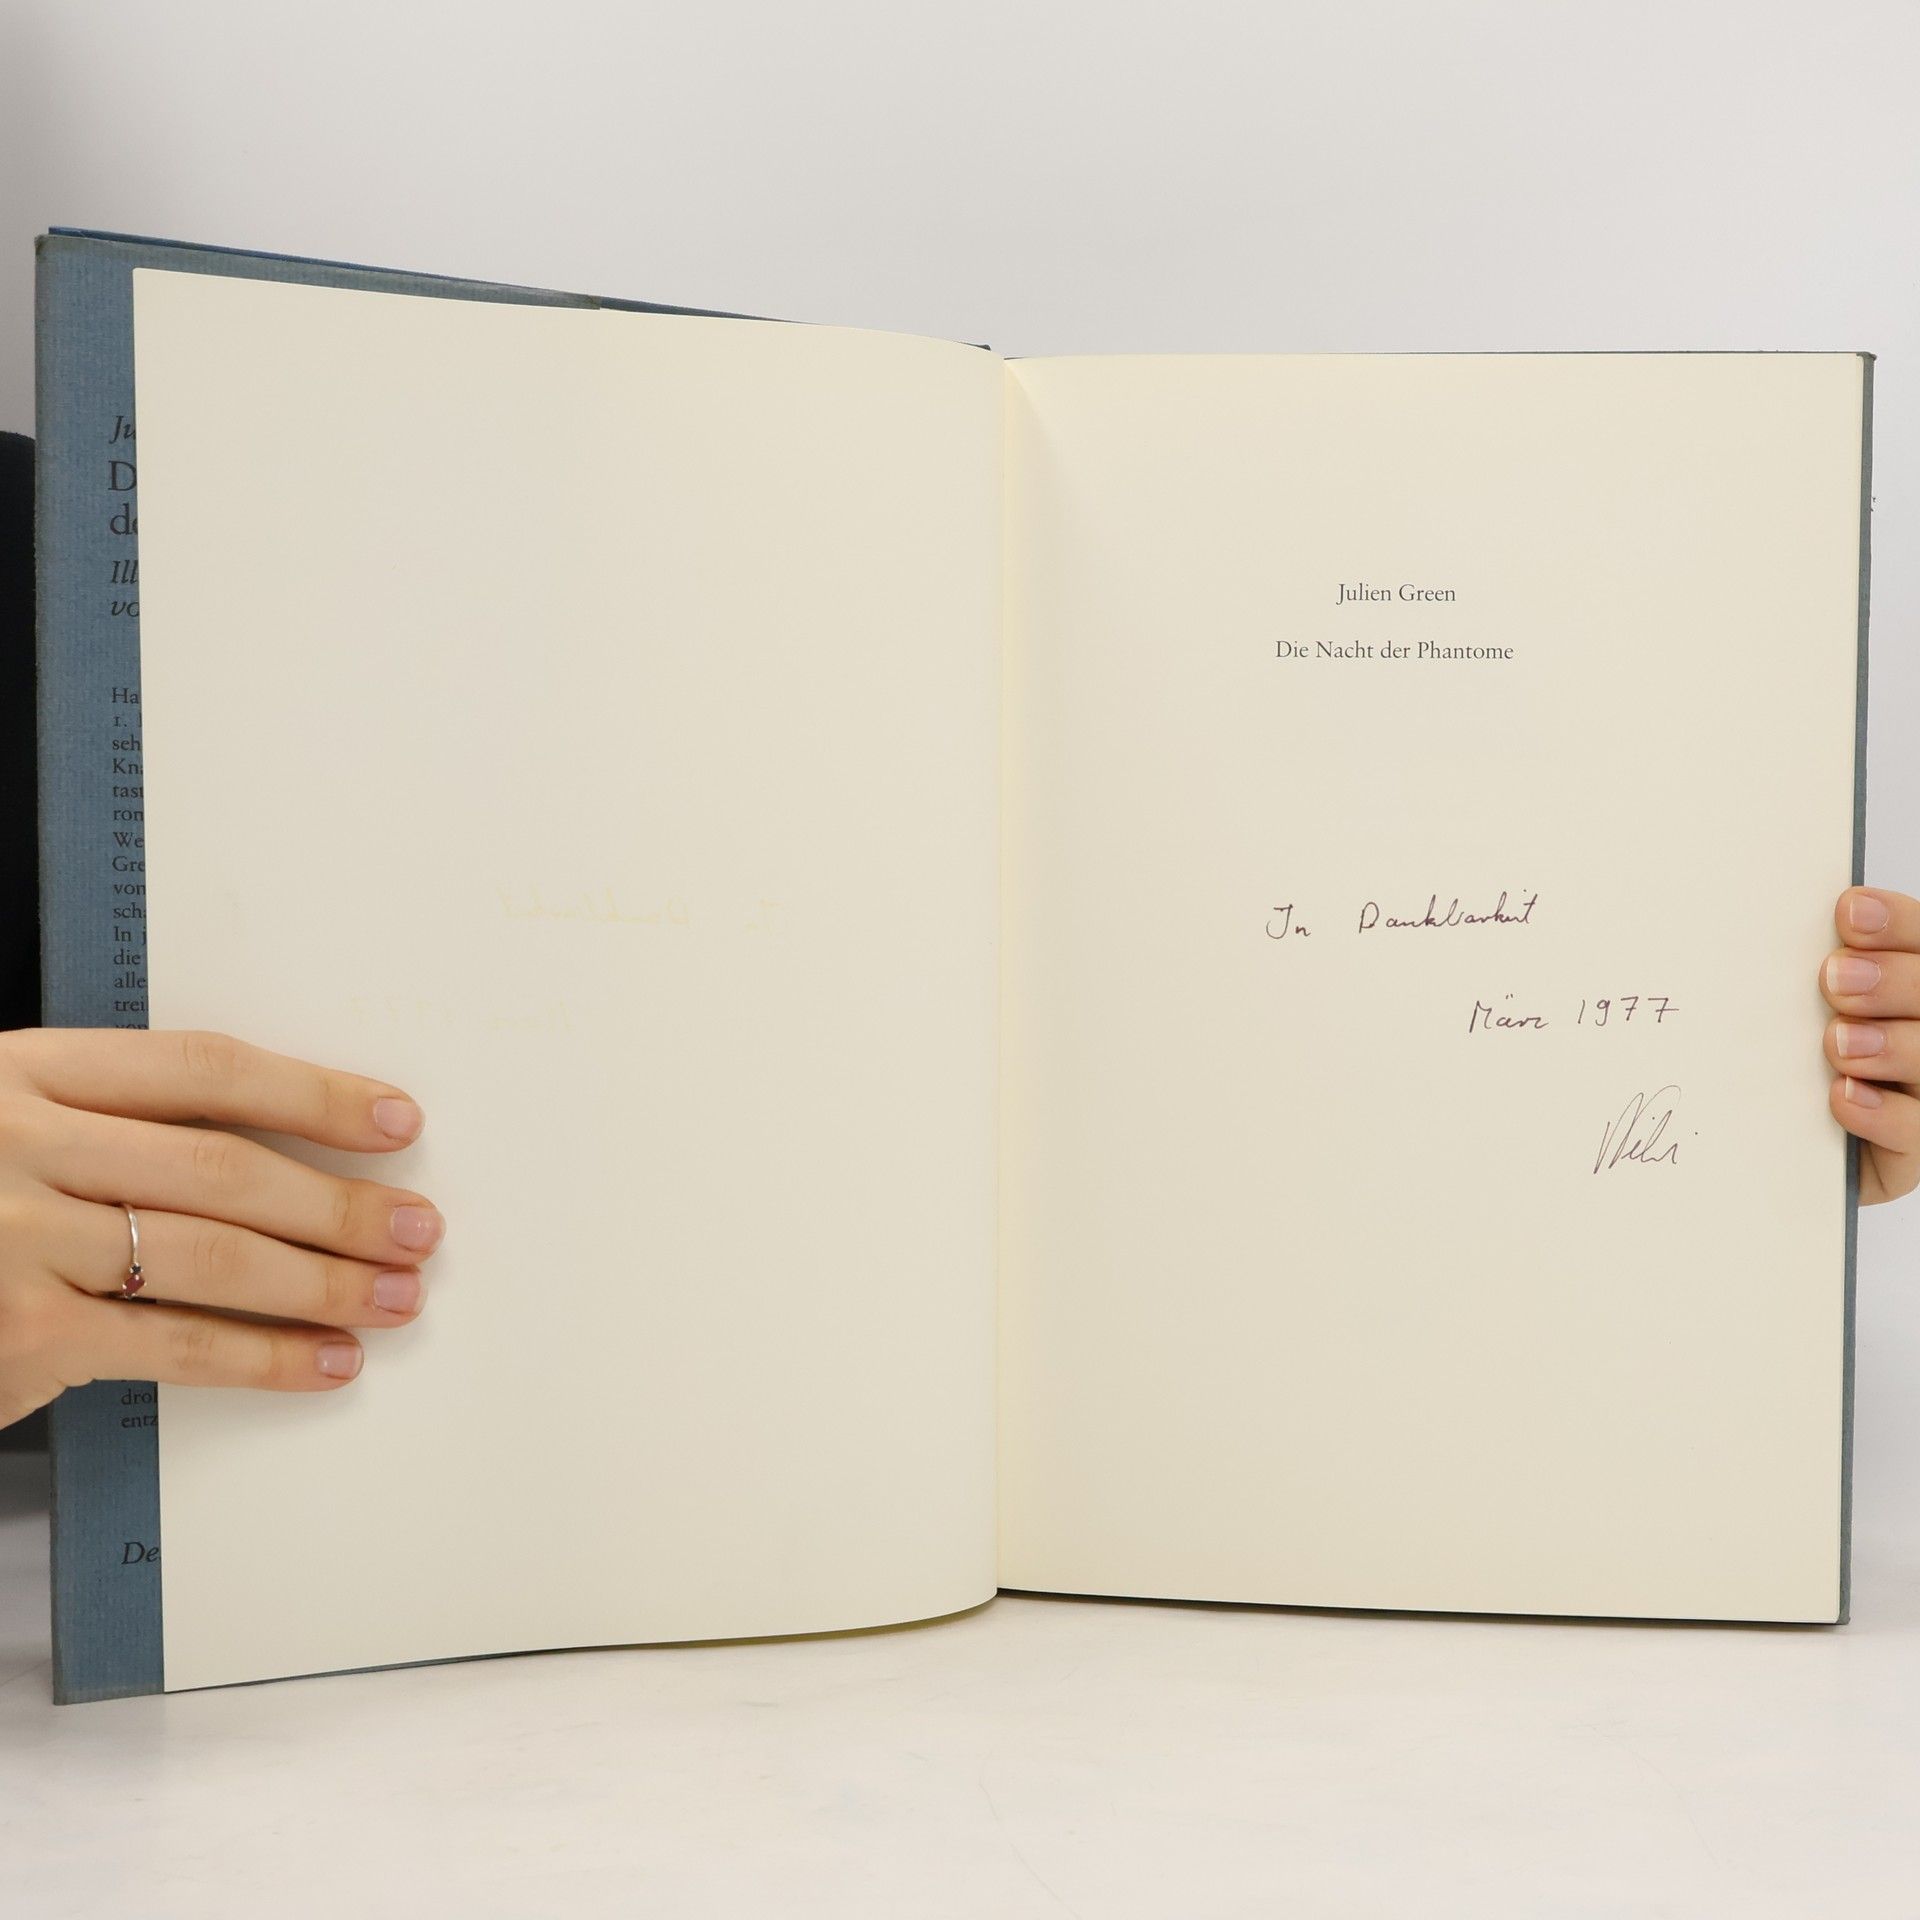 Ju
D
de
Ill
vo
Ha
1.
seh
Kn
tast
ron
We
Gre
von
sch
In j
die
alle
trei
von
drol
entz
De
Julien Green
Die Nacht der Phantome
In Dankbarkeit
März 1977